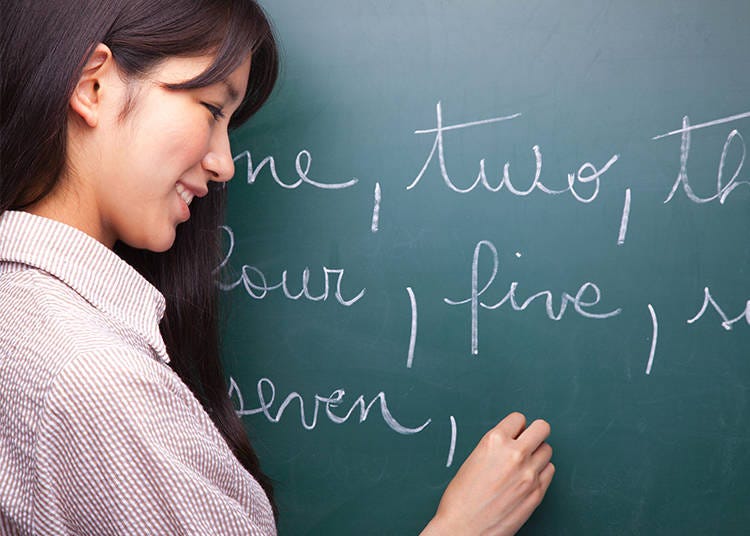 ne, two, th
four, five, si
seven,